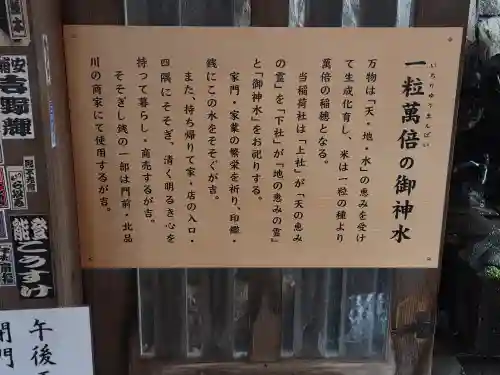 一粒萬倍の御神水
いちりゅうまんばい
万物は「天・地・水」の恵みを受け
て生成化育し、米は一粒の種より
萬倍の稲穂となる。
当稲荷社は「上社」が「天の恵み
の霊」を「下社」が「地の恵みの霊」
と「御神水」をお祀りする。
家門・家業の繁栄を祈り、印鑑・
銭にこの水をそそぐが吉。
また、持ち帰りて家・店の入口・
四隅にそそぎ、清く明るき心を
持って暮らし・商売するが吉。
そそぎし銭の一部は門前・北品
川の商家にて使用するが吉。
吉野輝
こうすけ
午後
開門